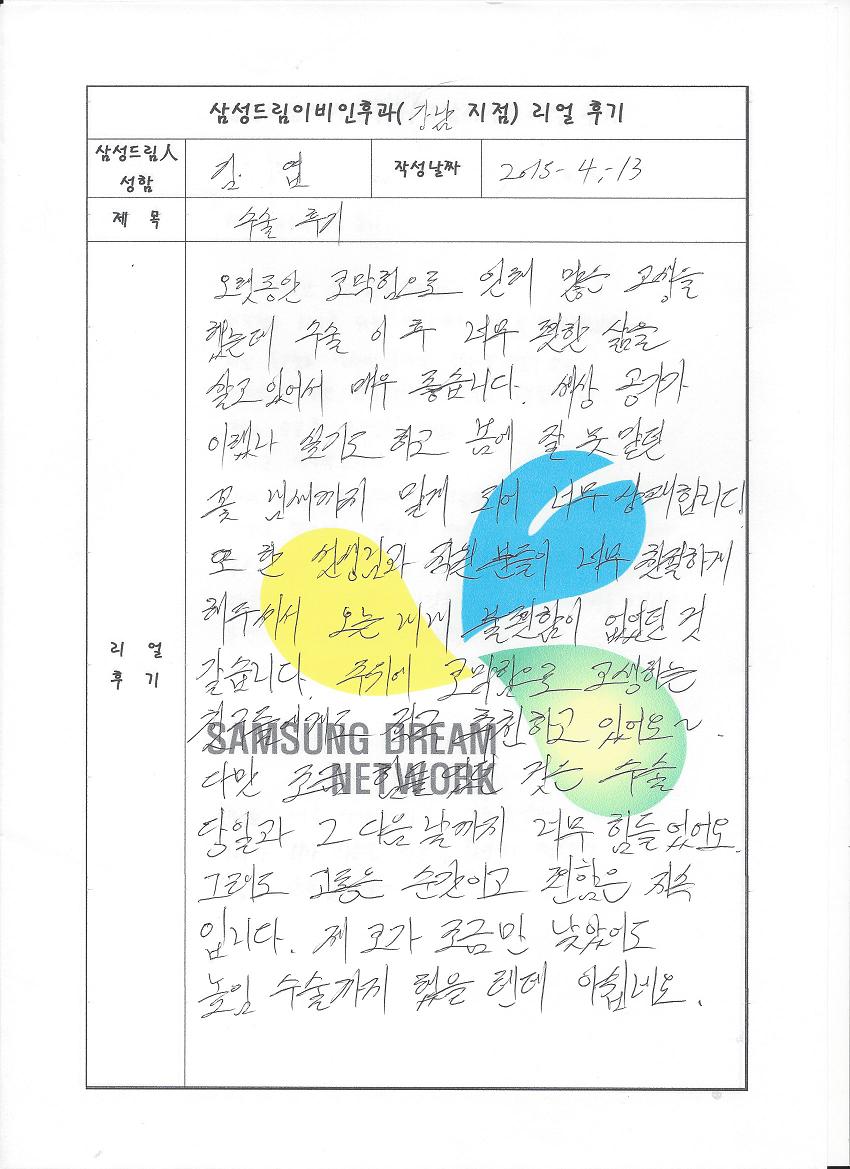 삼성드림이비인후과(강남 지점) 리얼 후기
삼성드림人 성함 김 엽 작성날짜 2015-4.-13
제 목 수술 후기
리 얼 후 기
오랫동안 코막힘으로 인해 많은 고생을
했는데 수술 이 후 너무 편한 삶을
살고 있어서 매우 좋습니다. 세상 공기가
이랬나 싶기도 하고 봄에 잘 못 맡던
꽃 냄새까지 맡게 되어 너무 상쾌합니다
또 한 선생님과 직원 분들이 너무 친절하게
해주셔서 오는 내내 불편함이 없었던 것
같습니다. 주위에 코막힘으로 고생하는
친구들에게도 적극 추천하고 있어요~.
SAMSUNG DREAM
NETWORK
다만 조금 힘들 것은 수술
당일과 그 다음 날까지 너무 힘들었어요.
그래도 고통은 순간이고 편함은 지속
입니다. 제 코가 조금만 낮았어도
높임 수술까지 했을 텐데 아쉽네요.